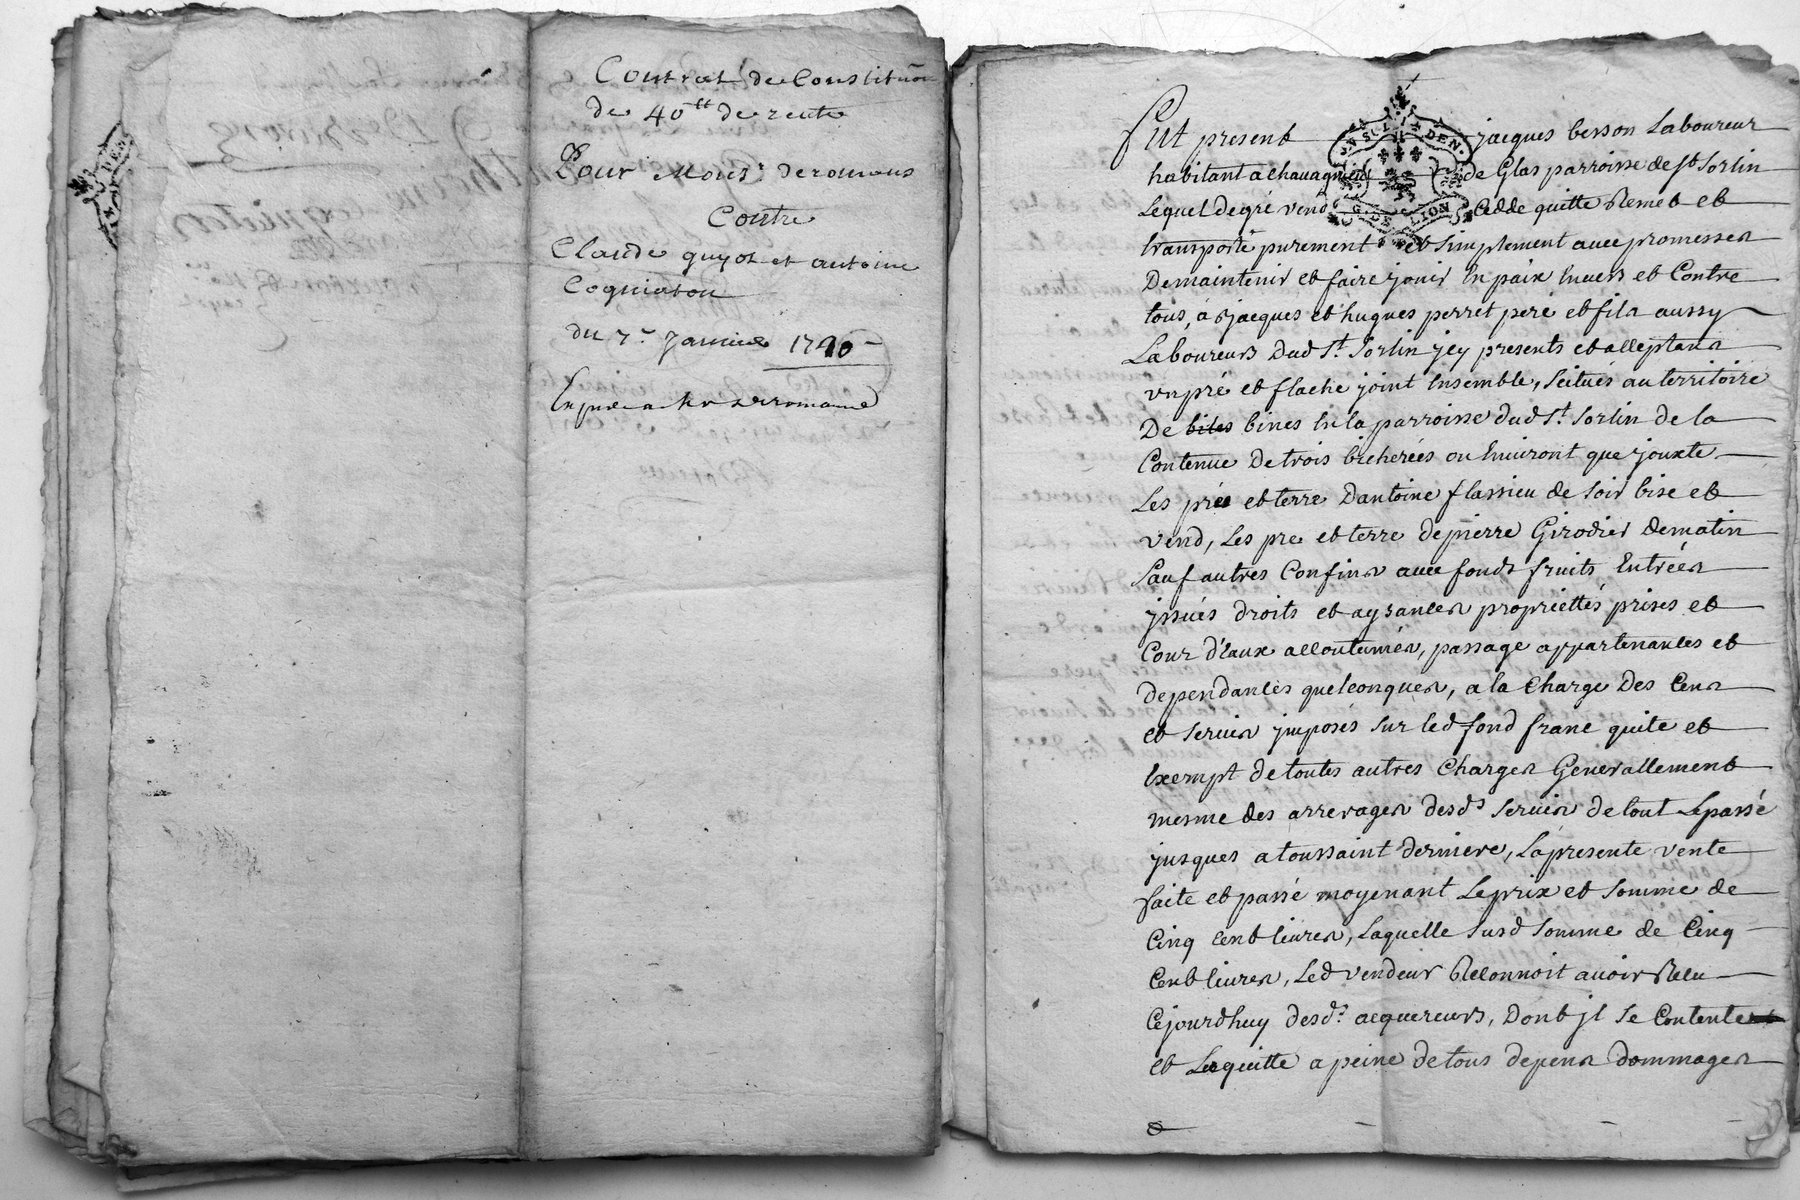 Contrat de Constitu͠on
de 40ᵗᵗ de rente
Pour Monsʳ deromans
Contre
Claude guyot et antoine
Cogniaton
du 7ᵉ Janvier 1740
Fut present jacques besson Laboureur
habitant a chavagnieu de Glas parroisse de sᵗ Sorlin
Lequel degré vend Cedde quitte Remet et
transporte purement et simplement avec promesses
De maintenir et faire jouir En paix Envers et Contre
tous, a jacques et hugues perret pere et fils aussy
Laboureurs dud sᵗ. Sorlin jcy presents et acceptans
vn pré et flache joint Ensemble, scitués au territoire
De biles bines En la parroisse dud sᵗ. Sorlin de la
Contenue De trois bicherées ou Environt que jouxte
Les prés et terre D'antoine flassieu de soir bise et
vend, Les pre et terre de pierre Girodier de matin
Sauf autres Confins avec fonds fruits Entrées
jssués droits et aysances propriettés prises et
Cour d'Eaux accoutumés, passage appartenances et
dependances quelconques, a la Charge Des Cens
et servis jmposés sur led fond franc quite et
Exempt de toutes autres Charges Generallement
mesme des arrerages desdˢ servis de tout Le passé
jusques a toussaint derniere, La presente vente
faite et passé moyenant Le prix et somme de
Cinq Cent livres, Laquelle susd somme de Cinq
Cent livres, Led vendeur Reconnoit avoir Receu
Cejourdhuy desdˢ. acquereurs, Dont jl se Contente
et Les quitte a peine de tous depens dommages